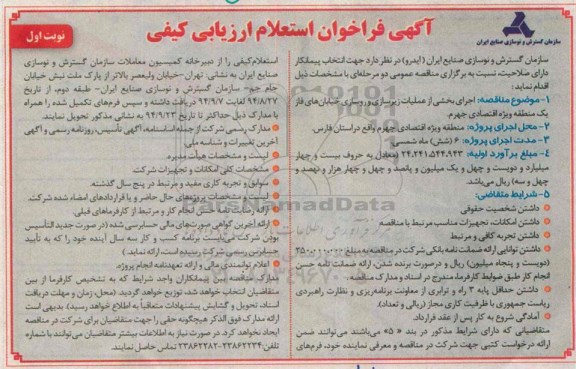 آگهی فراخوان استعلام ارزیابی کیفی
نوبت اول
سازمان گسترش و نوسازی صنایع ایران
سازمان گسترش و نوسازی صنایع ایران (ایدرو) در نظر دارد جهت انتخاب پیمانکار
دارای صلاحیت، نسبت به برگزاری مناقصه عمومی دو مرحله‌ای با مشخصات ذیل
اقدام نماید:
۱- موضوع مناقصه: اجرای بخشی از عملیات زیرسازی و روسازی خیابان‌های فاز
یک منطقه ویژه اقتصادی جهرم.
۲- محل اجرای پروژه: منطقه ویژه اقتصادی جهرم واقع در استان فارس.
۳- مدت اجرای پروژه: ۶ (شش) ماه شمسی.
۴- مبلغ برآورد اولیه: ۲۴،۲۴۱،۵۴۴،۹۴۳ (معادل به حروف بیست و چهار
میلیارد و دویست و چهل و یک میلیون و پانصد و چهل و چهار هزار و نهصد و
چهل و سه) ریال می‌باشد.
۵- شرایط متقاضی:
داشتن شخصیت حقوقی
داشتن امکانات، تجهیزات مناسب مرتبط با مناقصه
داشتن تجربه کافی و مرتبط
داشتن توانایی ارائه ضمانت نامه بانکی شرکت در مناقصه به مبلغ
(دویست و پنجاه میلیون) ریال و در صورت برنده شدن، ارائه ضمانت نامه حسن
انجام کار طبق ضوابط کارفرما، مندرج در اسناد و مدارک مناقصه
داشتن حداقل پایه ۳ راه و ترابری از معاونت برنامه‌ریزی و نظارت راهبردی
ریاست جمهوری با ظرفیت کاری مجاز (ریالی و تعداد).
آمادگی شروع به کار پس از عقد قرارداد.
متقاضیانی که دارای شرایط مذکور در بند «۵» می‌باشند می‌توانند ضمن
ارائه درخواست کتبی جهت شرکت در مناقصه و معرفی نماینده خود، فرم‌های
استعلام کیفی را از دبیرخانه کمیسیون معاملات سازمان گسترش و نوسازی
صنایع ایران به نشانی: تهران -خیابان ولیعصر بالاتر از پارک ملت نبش خیابان
جام جم- سازمان گسترش و نوسازی صنایع ایران- طبقه دوم، از تاریخ
۹۴/۸/۲۷ لغایت ۹۴/۹/۷ دریافت داشته و سپس فرم‌های تکمیل شده را همراه
با مدارک ذیل حداکثر تا تاریخ ۹۴/۹/۲۳ به نشانی مذکور تحویل نمایند.
مدارک رسمی شرکت از جمله اساسنامه، آگهی تأسیس، روزنامه رسمی و آگهی
آخرین تغییرات و شناسه ملی.
لیست و مشخصات هیأت مدیره.
مشخصات کلی امکانات و تجهیزات شرکت.
سوابق و تجربه کاری مفید و مرتبط در پنج سال گذشته.
لیست و مشخصات پروژه‌های حال حاضر و یا قراردادهای امضاء شده شرکت.
ارائه رضایت نامه حسن انجام کار و مرتبط از کارفرماهای قبلی.
ارائه آخرین گواهی صورت‌های مالی حسابرسی شده (در صورت جدید التأسیس
بودن شرکت می‌بایست برنامه کسب و کار سه سال آینده خود را که به تأیید
حسابرس رسمی شرکت رسیده است، ارائه نماید.)
اعلام توانمندی مالی و ارائه تعهدنامه انجام پروژه.
مدارک مناقصه بین پیمانکاران واجد شرایط که به تشخیص کارفرما از بین
متقاضیان انتخاب خواهد شد، توزیع خواهد گردید. (محل، زمان و مهلت دریافت
اسناد، تحویل و گشایش پیشنهادات متعاقباً به اطلاع خواهد رسید). بدیهی است
ارائه مدارک فوق الذکر هیچگونه حقی را جهت متقاضیان برای شرکت در مناقصه
ایجاد نخواهد کرد. در صورت نیاز به اطلاعات بیشتر متقاضیان می‌توانند با شماره
تلفن: ۲۳۸۶۲۲۳۴-۲۳۸۶۲۲۸۲ تماس حاصل نمایند.